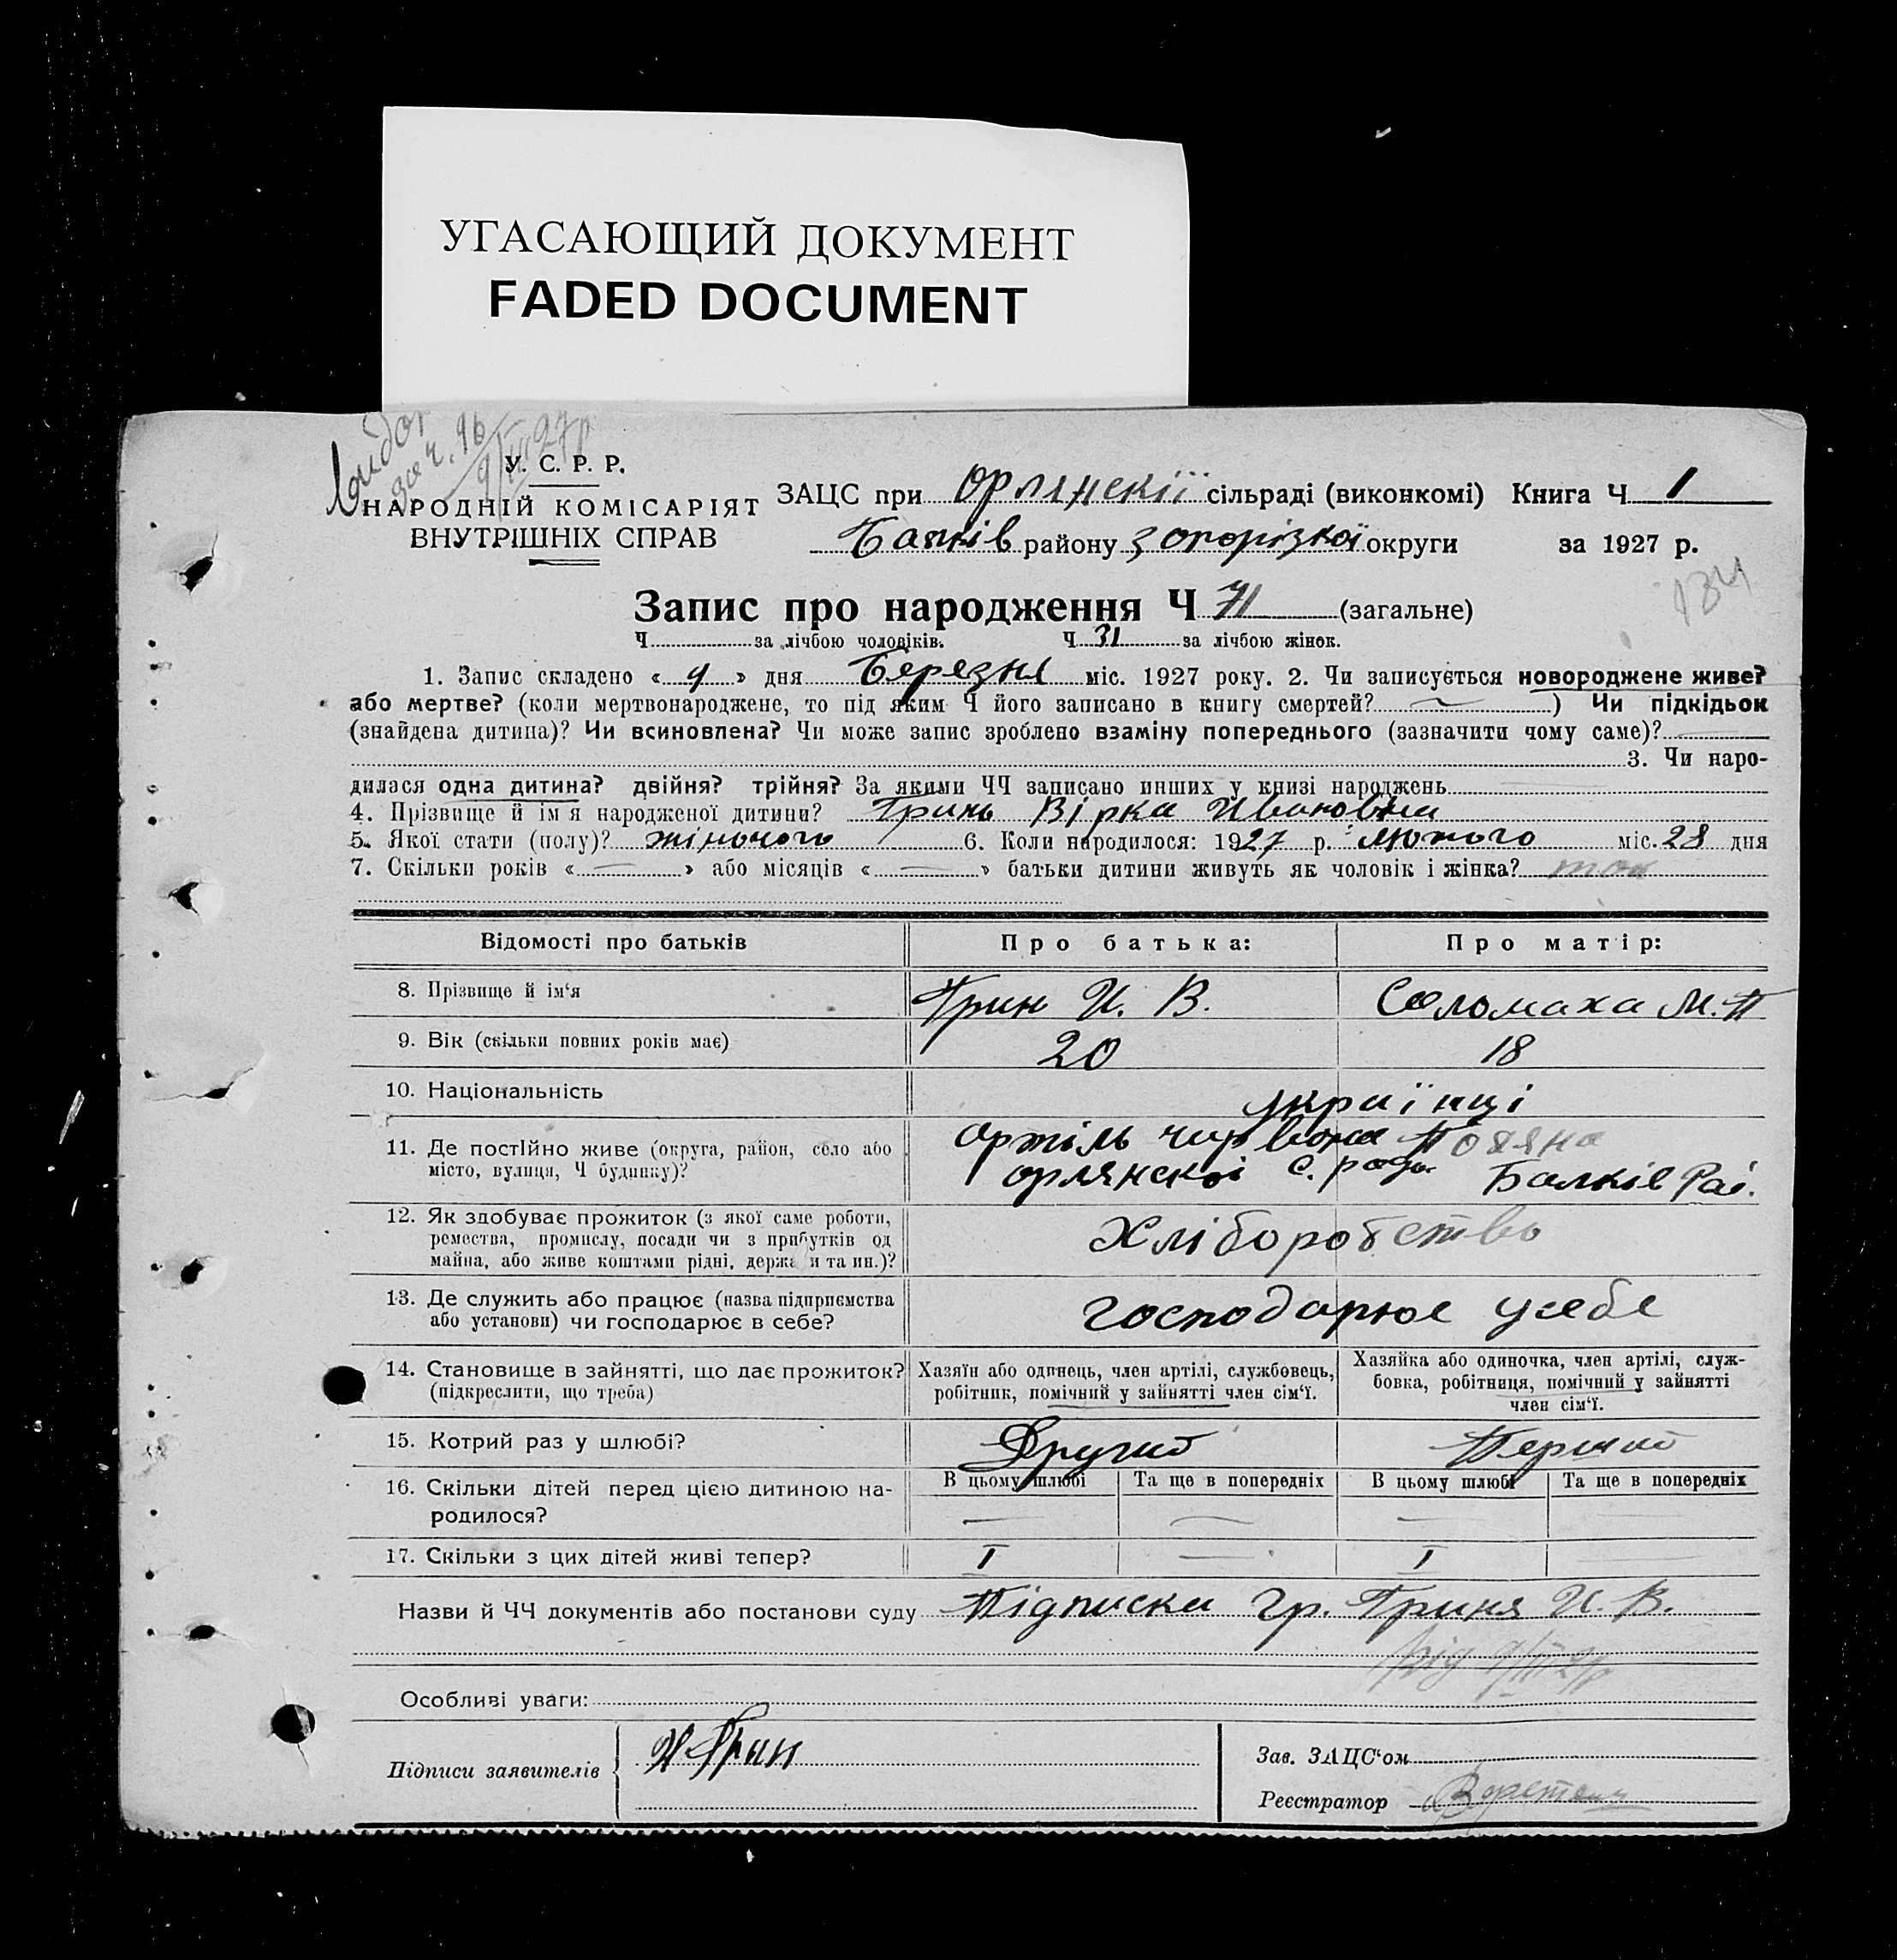 УГАСАЮЩИЙ ДОКУМЕНТ
FADED DOCUMENT
У. С. Р. Р.
НАРОДНІЙ КОМІСАРІЯТ
ВНУТРІШНІХ СПРАВ
ЗАЦС при Орлянскії сільраді (виконкомі) Книга Ч 1
району Запорізкої округи за 1927 р.
184
Запис про народження Ч 71 (загальне)
Ч за лічбою чоловіків. Ч 31 за лічбою жінок.
1. Запис складено « 9 » дня Березня міс. 1927 року. 2. Чи записується новороджене живе?
або мертве? (коли мертвонароджене, то під яким Ч його записано в книгу смертей? — ) Чи підкідьок
(знайдена дитина)? Чи всиновлена? Чи може запис зроблено взаміну попереднього (зазначити чому саме)? —
3. Чи наро-
дилася одна дитина? двійня? трійня? За якими ЧЧ записано инших у книзі народжень —
4. Прізвище й імʼя народженої дитини? Гринь Вірка Ивановна
5. Якої стати (полу)? жіночого 6. Коли народилося: 1927 р. лютого міс. 28 дня
7. Скільки років « — » або місяців « — » батьки дитини живуть як чоловік і жінка? так
Відомості про батьків Про батька: Про матір:
8. Прізвище й імʼя Грин И. В. Соломаха М. П
9. Вік (скільки повних років має) 20 18
10. Національність українці
11. Де постійно живе (округа, район, село або місто, вулиця, Ч будинку)? Артіль червона Поляна
Орлянскоі с. ради Балків Рай.
12. Як здобуває прожиток (з якої саме роботи,
ремества, промислу, посади чи з прибутків од
майна, або живе коштами рідні, держави та ин.)? Хліборобство
13. Де служить або працює (назва підприємства
або установи) чи господарює в себе? господарює у себе
14. Становище в зайнятті, що дає прожиток?
(підкреслити, що треба)
Хазяїн або одинець, член артілі, службовець,
робітник, помічний у зайнятті член сімʼї.
Хазяйка або одиночка, член артілі, служ-
бовка, робітниця, помічний у зайнятті
член сімʼї.
15. Котрий раз у шлюбі? Другий Перший
16. Скільки дітей перед цією дитиною на-
родилося?
В цьому шлюбі Та ще в попередніх В цьому шлюбі Та ще в попередніх
— — — —
17. Скільки з цих дітей живі тепер? I — I —
Назви й ЧЧ документів або постанови суду Підписка гр. Гриня И. В.
Особливі уваги:
Підписи заявителів И Грин
Зав. ЗАЦСʼом
Реєстратор